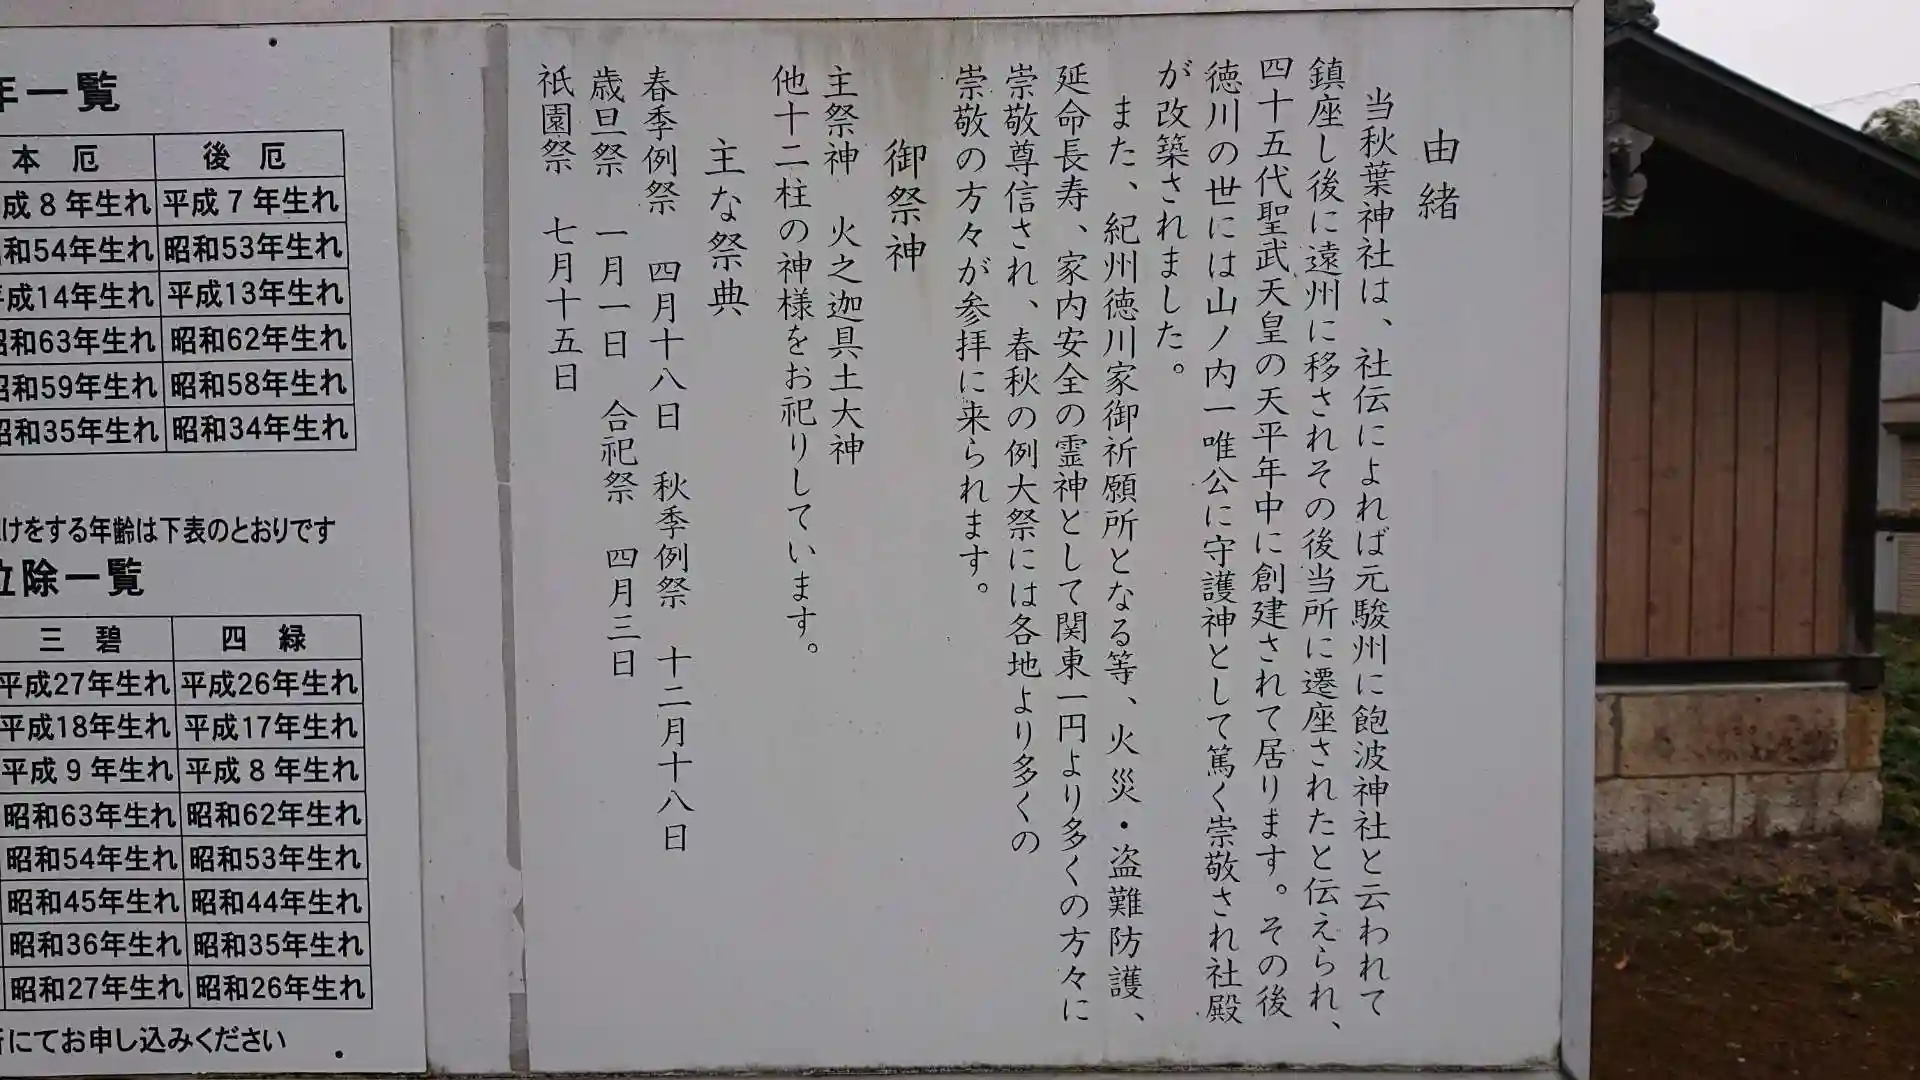 由緒
当秋葉神社は、社伝によれば元駿州に飽波神社と云われて
鎮座し後に遠州に移されその後当所に遷座されたと伝えられ、
四十五代聖武天皇の天平年中に創建されて居ります。その後
徳川の世には山ノ内一唯公に守護神として篤く崇敬され社殿
が改築されました。
また、紀州徳川家御祈願所となる等、火災・盗難防護、
延命長寿、家内安全の霊神として関東一円より多くの方々に
崇敬尊信され、春秋の例大祭には各地より多くの
崇敬の方々が参拝に来られます。
御祭神
主祭神 火之迦具土大神
他十二柱の神様をお祀りしています。
主な祭典
春季例祭 四月十八日 秋季例祭 十二月十八日
歳旦祭 一月一日 合祀祭 四月三日
祇園祭 七月十五日
年一覧
本厄 後厄
成8年生れ 平成7年生れ
和54年生れ 昭和53年生れ
成14年生れ 平成13年生れ
昭和63年生れ 昭和62年生れ
昭和59年生れ 昭和58年生れ
昭和35年生れ 昭和34年生れ
けをする年齢は下表のとおりです
位除一覧
三碧 四緑
平成27年生れ 平成26年生れ
平成18年生れ 平成17年生れ
平成9年生れ 平成8年生れ
昭和63年生れ 昭和62年生れ
昭和54年生れ 昭和53年生れ
昭和45年生れ 昭和44年生れ
昭和36年生れ 昭和35年生れ
昭和27年生れ 昭和26年生れ
にてお申し込みください